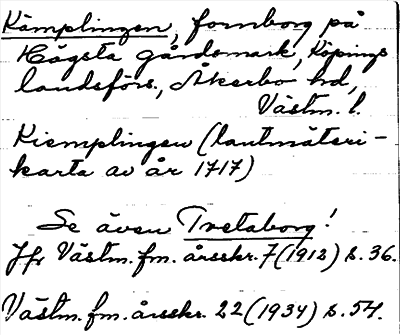 Kämplingen, fornborg på
Högsta gårdsmark, Köpings
landsförs., Åkerbo hd,
Västm. l.
Kiemplingen (lantmäteri-
karta av år 1717)
Se även Tvetaborg!
Jfr Västm. fm. årsskr. 7 (1912) s. 36.
Västm. fm. årsskr. 22 (1934) s. 54.